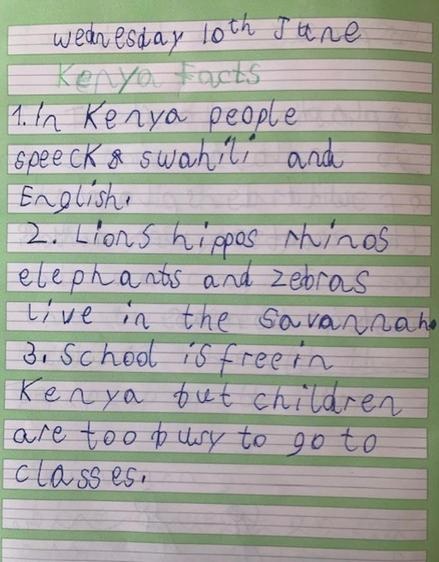 Wednesday 10th June
Kenya Facts
1. In Kenya people
speeck swahili and
English.
2. Lions hippos rhinos
elephants and zebras
Live in the savannah.
3. School is free in
Kenya but children
are too busy to go to
classes.